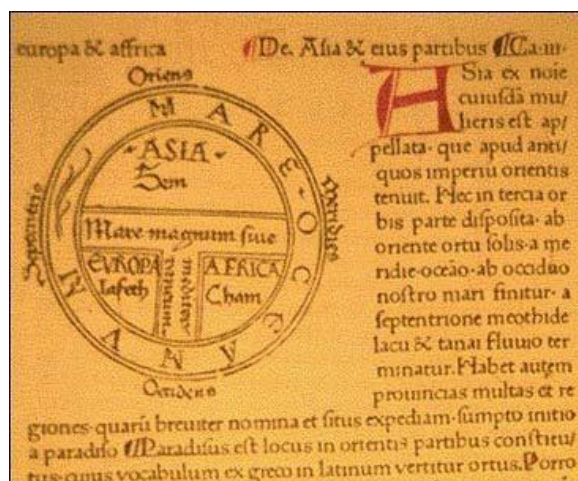 europa & affrica
¶De. Asia & eius partibus ¶Ca·iii·
Oriens
MARE·OCEANUM
·ASIA·
Sem
Mare magnum siue
mediterraneum
EVROPA
Iafeth
AFRICA
Cham
Septentrio
Meridies
Occidens
ASia ex noie
cuiusdā mu/
lieris est ap/
pellata· que apud anti/
quos imperiu orientis
tenuit. Hec in tercia or
bis parte disposita· ab
oriente ortu solis· a me
ridie· oceāo· ab occiduo
nostro mari finitur· a
septentrione meothide
lacu & tanai fluuio ter
minatur. Habet autem
prouincias multas et re
giones· quarū breuiter nomina et situs expediam· sumpto initio
a paradiso ¶Paradisus est locus in orientis partibus constitu/
tus· cuius vocabulum ex greco in latinum vertitur ortus. Porro